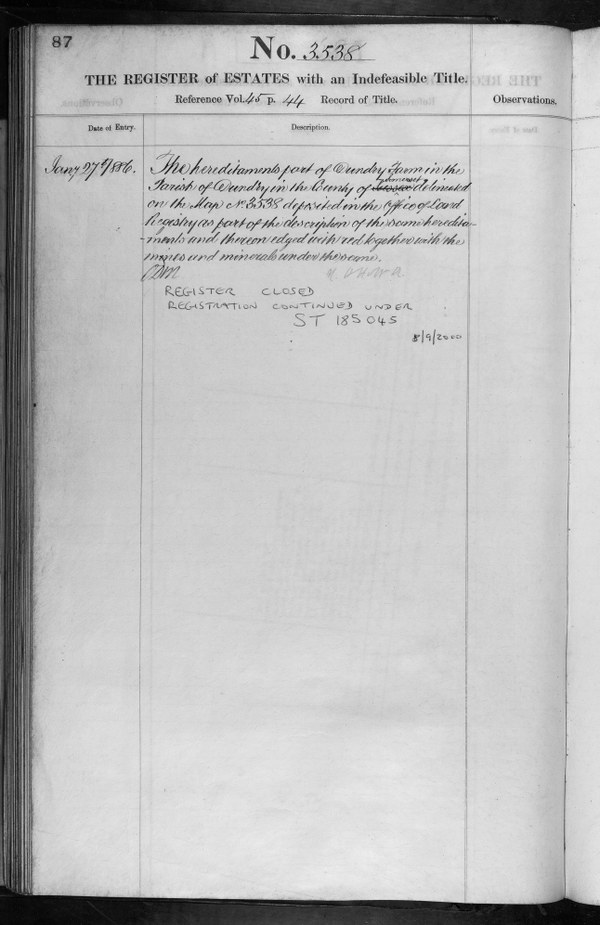 87
No. 3538
THE REGISTER of ESTATES with an Indefeasible Title.
Reference Vol. 45 p. 44 Record of Title.
Observations.
Date of Entry.
Description.
Jany 27th 1886.
The hereditaments part of Dundry Farm in the
Parish of Dundry in the County of Somerset delineated
on the Map No 3538 deposited in the Office of Land
Registry as part of the description of the same heredita-
ments and thereon edged with red together with the
mines and minerals under the same.
REGISTER CLOSED
REGISTRATION CONTINUED UNDER
ST 185045
8/9/2000